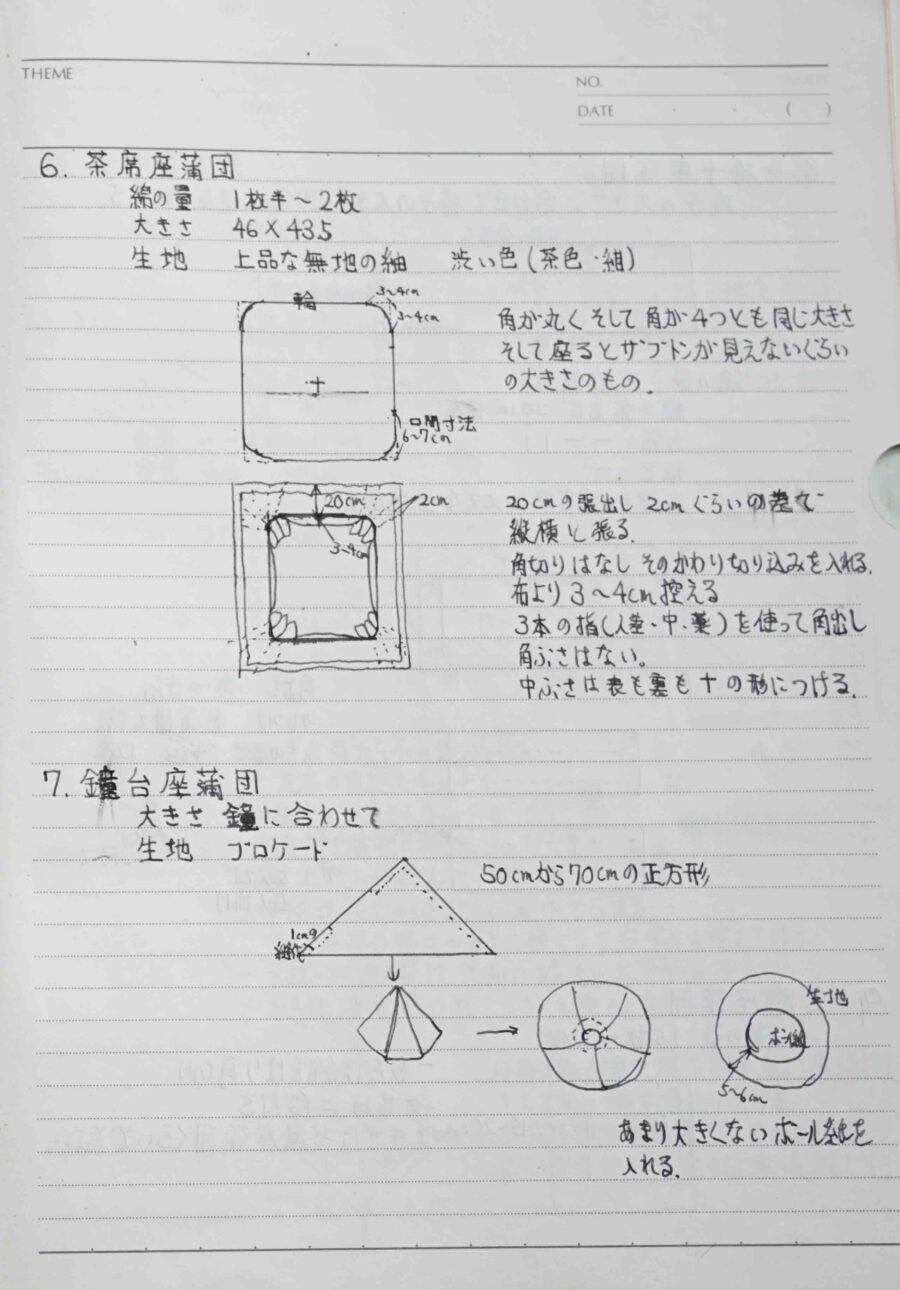 THEME
NO.
DATE ・ ・ ( )
6. 茶席座蒲団
綿の量 1枚半〜2枚
大きさ 46×43.5
生地 上品な無地の紬 渋い色(茶色・紺)
輪
3〜4cm
3〜4cm
口開寸法
6〜7cm
角が丸く そして 角が4つとも同じ大きさ
そして座るとザブトンが見えないくらい
の大きさのもの.
20cm
2cm
3〜4cm
20cmの張出し 2cmぐらいの差で
縦横と張る.
角切りはなし そのかわり切り込みを入れる.
布より3〜4cm控える
3本の指(人差・中・薬)を使って角出し
角ぶさはない。
中ぶさは表も裏も十の形につける.
7. 鐘台座蒲団
大きさ 鐘に合わせて
生地 ブロケード
50cmから70cmの正方形
1cmの
縫代
生地
ボール紙
5〜6cm
あまり大きくないボール紙を
入れる.